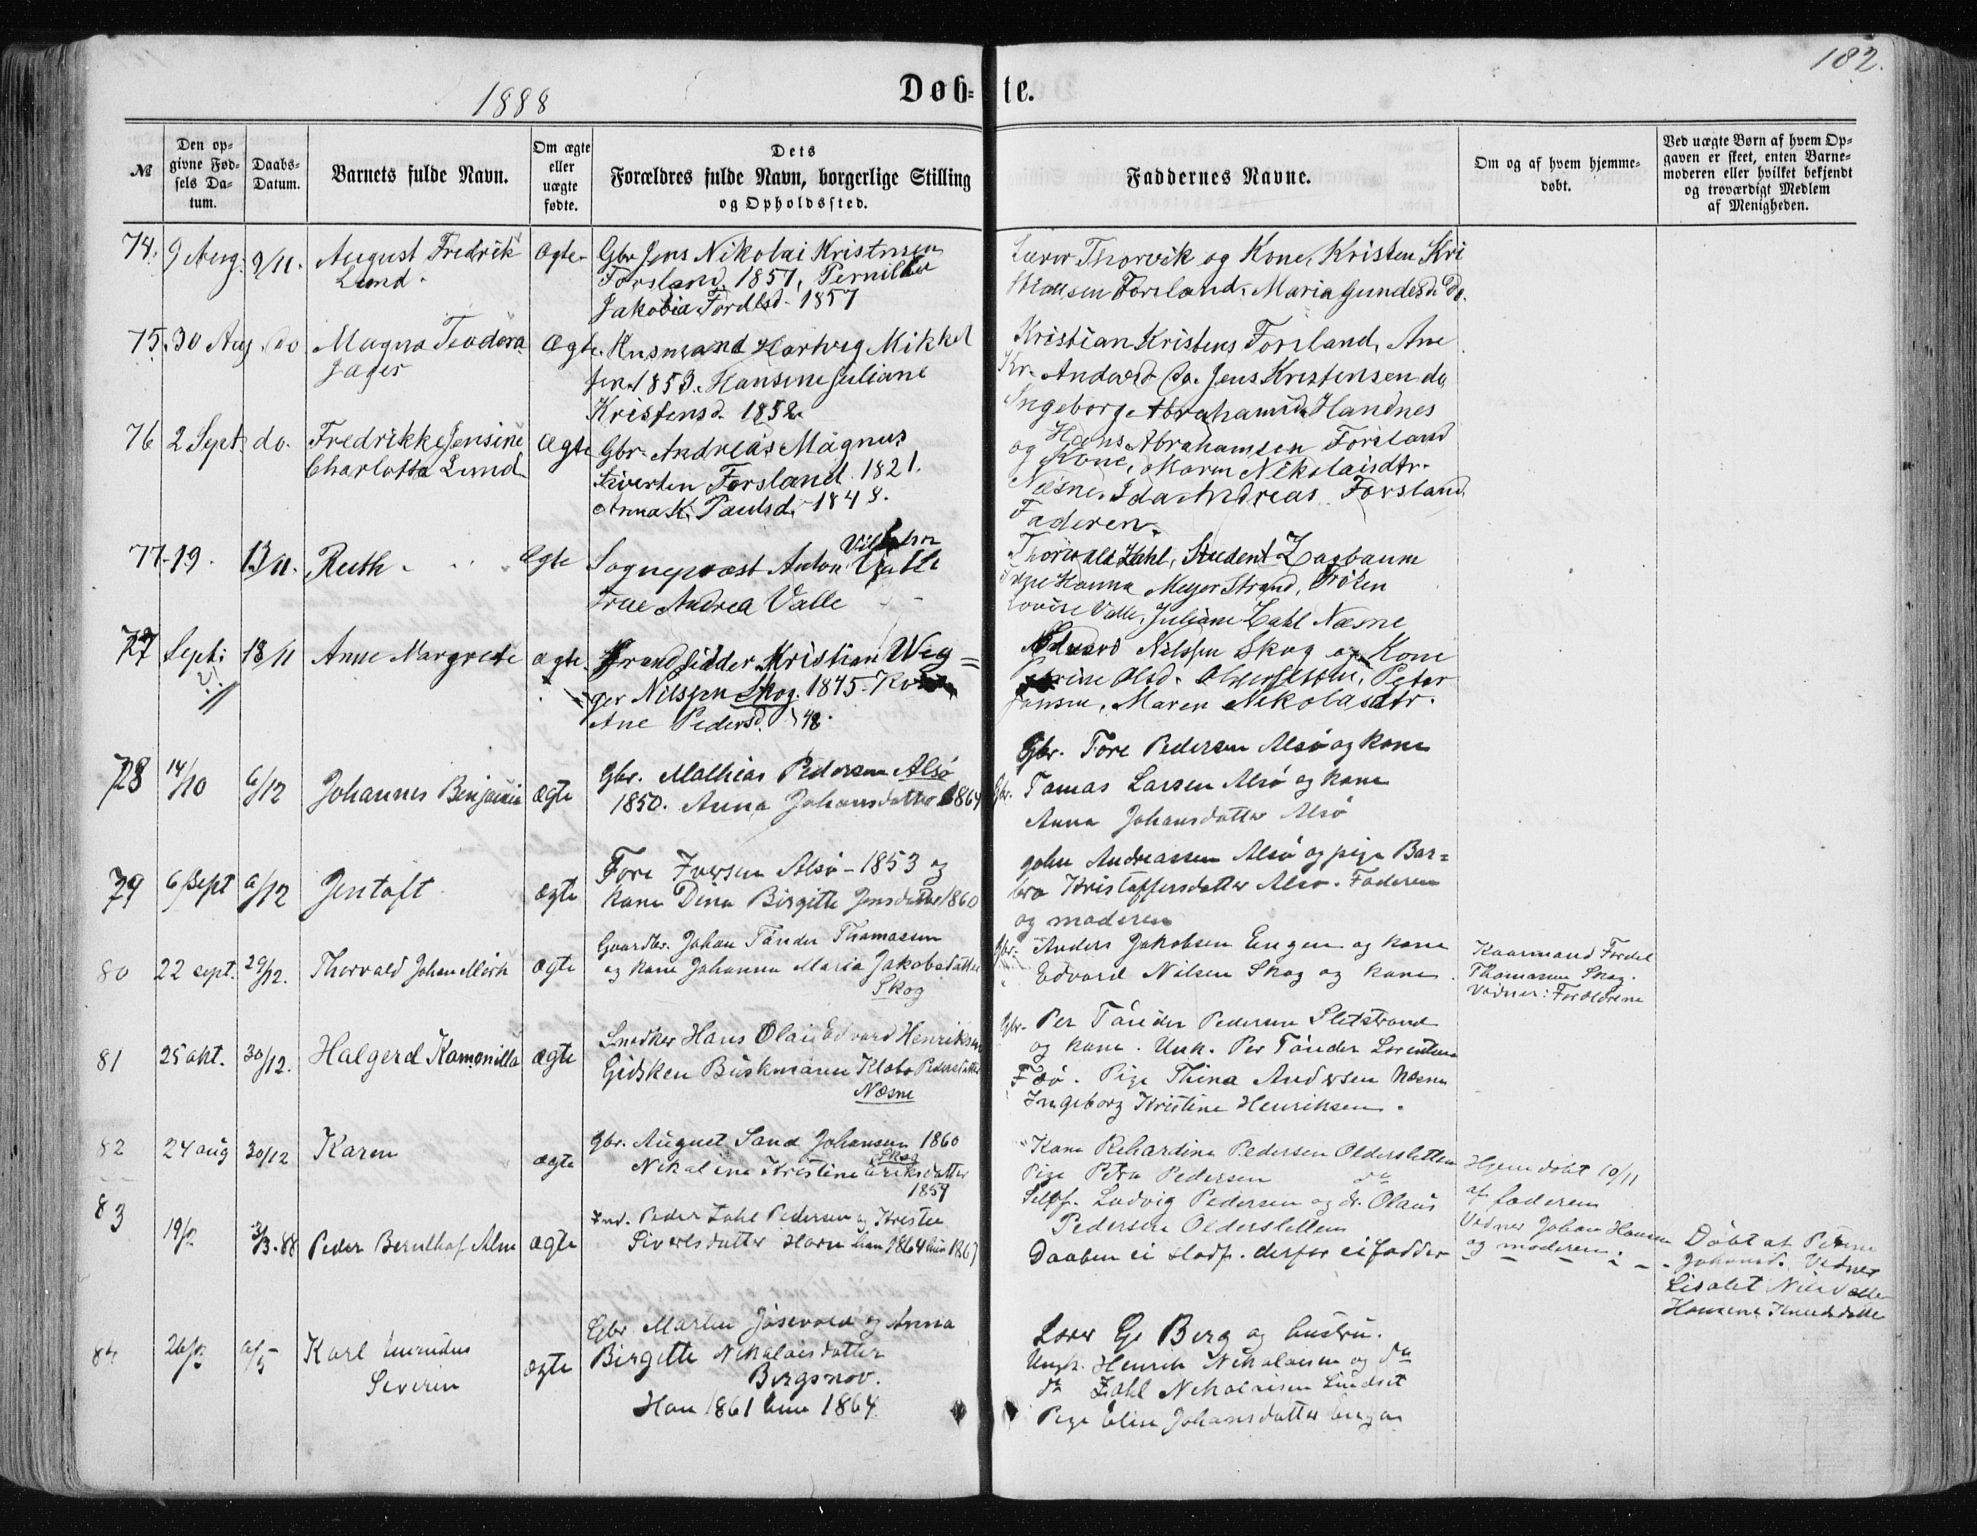 182.
1888
Døb-te.
№
Den op-
givne Fød-
sels Da-
tum.
Daabs-
Datum.
Barnets fulde Navn.
Om ægte
eller
uægte
fødte.
Dets
Forældres fulde Navn, borgerlige Stilling
og Opholdssted.
Faddernes Navne.
Om og af hvem hjemme-
døbt.
Ved uægte Børn af hvem Op-
gaven er skeet, enten Barne-
moderen eller hvilket bekjendt
og troværdigt Medlem
af Menigheden.
74. 9 Aug. August Fredrik
Lund.
Ægte
Gbr Jens Nikolai Kristnsen
Forsland. 1857, Pernille
Jakobia 1857
Lærer Thorvik og Kone, Kristen Kri
Forsland.
75. 30 Aug. do Magna Teodora
Jager
Ægte.
Husmand Hartvig Mikkel
sen 1853. Hansine Juliane
Kristensd. 1852
Kristian Kristens Forsland, Ane
Kr. Andersd do. Jens Kristensen do
Ingeborg Abrahamsd. Handnes
76 2 Sept. do. Fredrikke Jensine
Charlotta Lund
Ægte
Gbr. Andreas Magnus
Sivertsen Forsland 1821.
Anna K. Paulsd. 1848.
Hans Abrahamsen Forsland
og Kone, Maren Nikolaisdtr.
Næsne. Ida Andreas. Forsland
Faderen.
77. 19. 13/11. Ruth
Ægte
Sognepræst Anton Vilhelm Valle
Frue Andrea Valle
Thorvald Zahl, Student Zagbaum
Hanna Meyer Strand, Frøken
Lovise Valle, Juliane Zahl Næsne
77 Sept: 18/11 Anne Margrete
ægte
Strandsidder Kristian Wig-
ger Nilssen Skog. 1845.
Ane Pedersd. 48.
Edvard Nilssen Skog og Kone
Olsd. Peter
Jensen, Maren Nikolaisdtr.
78 14/10 6/12 Johannes Benjamin
ægte
Gbr. Mathias Pedersen Alsø
1850. Anna Johansdatter 1864
Gbr. Tore Pedersen Alsø og kone
Gbr. Tomas Larsen Alsø og kone
Anna Johansdatter Alsø
79 6 sept 6/12 Jentoft
ægte
Tore Iversen Alsø - 1853 og
kone Dina Birgitte Jensdatter 1860
John Andreassen Alsø og pige Bar-
bro Kristoffersdatter Alsø. Faderen
og moderen
80 22 sept. 29/12. Thorvald Johan Mørk
ægte
Gaardbr. Johan Tønder Thomassen
og kone Johanna Maria Jakobsdatter
Skog
Gbr. Anders Jakobsen Engen og kone
Edvard Nilsen Skog og kone.
Kaarmand Fordel
Thomassen Skog.
Vidner: Forældrene
81 25 okt. 30/12. Halgerd Kamonilla
ægte
Snedker Hans Olai Edvard Henriksen
Gidsken Buskmann Klebo Pedersdatter
Næsne
Gbr. Per Tønder Pedersen Sletstrand
og kone. Unk. Per Tønder Lorentsen
Pige Thina Andersen Næsne
Ingeborg Kristine Henriksen.
82 24 aug 30/12 Karen
ægte
Gbr. August Sand Johansen 1860
Skog
Nikaline Kristine Eriksdatter
1859
Kone Rehardine Pedersen Oldersletten
Pige Petra Pedersen do
Selvf. Ludvig Pedersen og do. Olaus
Pedersen Oldersletten
Hjemdøbt 10/11
af faderen
Vidner Johan Hansen
og moderen.
83 3/3.88 Peder Bernlhof Alm
ægte
Ind. Peder Zahl Pedersen og
Sivertsdatter Horn han 1864 hun 1867
Daaben ei stadf. derfor ei fadder
Døbt af Petrine
Johansd. Vidner
Lisabet Nilsdatter
Hansine Knudsdatter
84 Karl
Severin
ægte
Gbr Martin Jøsevold og Anna
Birgitte Nikolaisdatter
Bergsnov.
Han 1861 hun 1864
Lærer Berg og hustru.
Ungk. Henrik Nikolaisen og do
do Zahl Nikolaisen Lindset
Pige Elise Johansdatter Engen